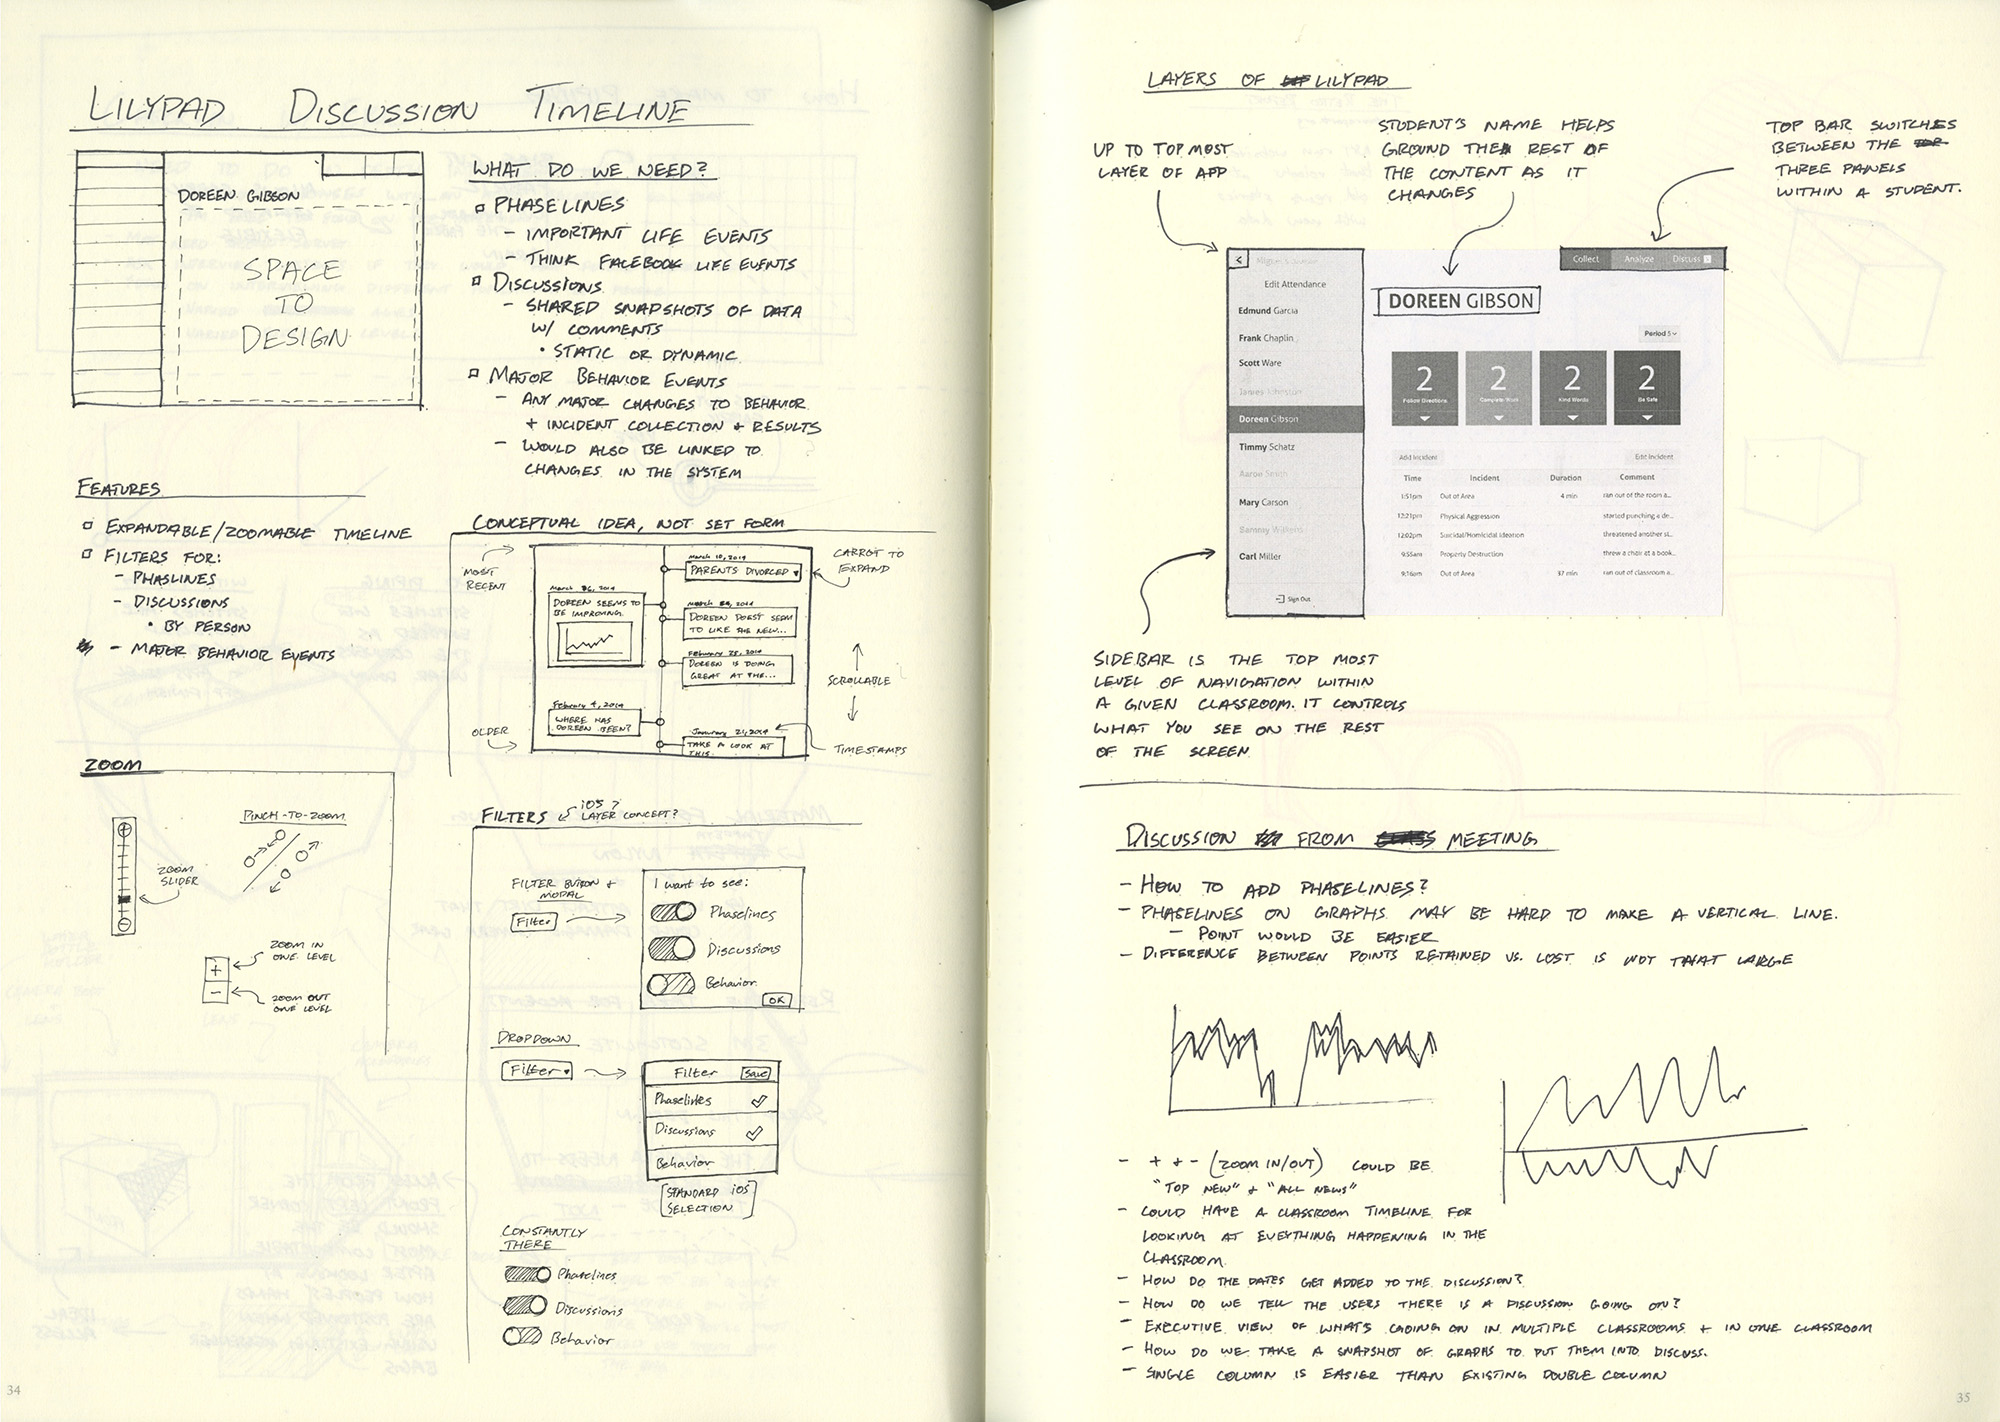 LILYPAD DISCUSSION TIMELINE
DOREEN GIBSON
SPACE
TO
DESIGN
WHAT DO WE NEED?
PHASELINES
- IMPORTANT LIFE EVENTS
- THINK FACEBOOK LIFE EVENTS
DISCUSSIONS
- SHARED SNAPSHOTS OF DATA
W/ COMMENTS
• STATIC OR DYNAMIC
MAJOR BEHAVIOR EVENTS
- ANY MAJOR CHANGES TO BEHAVIOR
+ INCIDENT COLLECTION + RESULTS
- WOULD ALSO BE LINKED TO
CHANGES IN THE SYSTEM
FEATURES
EXPANDABLE/ZOOMABLE TIMELINE
FILTERS FOR:
- PHASLINES
- DISCUSSIONS
• BY PERSON
- MAJOR BEHAVIOR EVENTS
CONCEPTUAL IDEA, NOT SET FORM
MOST
RECENT
OLDER
March 10, 2014
PARENTS DIVORCED
March 26, 2014
DOREEN SEEMS TO
BE IMPROVING.
DOREEN DOES'T SEEM
TO LIKE THE NEW...
February 25, 2014
DOREEN IS DOING
GREAT AT THE...
February 4, 2014
WHERE HAS
DOREEN BEEN?
21, 2014
TAKE A LOOK AT
THIS
CARROT TO
EXPAND
SCROLLABLE
TIMESTAMPS
ZOOM
ZOOM
SLIDER
PINCH-TO-ZOOM
ZOOM IN
ONE LEVEL
+
-
ZOOM OUT
ONE LEVEL
FILTERS
iOS 7
LAYER CONCEPT?
FILTER BUTTON +
MODAL
Filter
I want to see:
Phaselines
Discussions
Behavior
OK
DROPDOWN
Filter
Filter Save
Phaselines
Discussions
Behavior
STANDARD iOS
SELECTION
CONSTANTLY
THERE
Phaselines
Discussions
Behavior
34
LAYERS OF LILYPAD
UP TO TOP MOST
LAYER OF APP
STUDENT'S NAME HELPS
GROUND THE REST OF
THE CONTENT AS IT
CHANGES
TOP BAR SWITCHES
BETWEEN THE
THREE PANELS
WITHIN A STUDENT.
<
Edit Attendance
Edmund Garcia
Frank Chaplin
Scott Ware
James Johnston
Doreen Gibson
Timmy Schatz
Aaron Smith
Mary Carson
Sammy Williams
Carl Miller
Sign Out
Collect Analyze Discuss
DOREEN GIBSON
Period 5
2 2 2 2
Follow Directions Complete Work Kind Words Be Safe
Add Incident Edit Incident
Time Incident Duration Comment
1:51pm Out of Area 4 min ran out of the room a...
12:21pm Physical Aggression started punching a de...
12:02pm Suicidal/Homicidal Ideation threatened another st...
9:55am Property Destruction threw a chair at a book...
9:16am Out of Area 37 min ran out of classroom a...
SIDEBAR IS THE TOP MOST
LEVEL OF NAVIGATION WITHIN
A GIVEN CLASSROOM. IT CONTROLS
WHAT YOU SEE ON THE REST
OF THE SCREEN
DISCUSSION FROM MEETING
- HOW TO ADD PHASELINES?
- PHASELINES ON GRAPHS MAY BE HARD TO MAKE A VERTICAL LINE.
- POINT WOULD BE EASIER
- DIFFERENCE BETWEEN POINTS RETAINED VS. LOST IS NOT THAT LARGE
- + + - (ZOOM IN/OUT) COULD BE
"TOP NEW" + "ALL NEWS"
- COULD HAVE A CLASSROOM TIMELINE FOR
LOOKING AT EVEYTHING HAPPENING IN THE
CLASSROOM.
- HOW DO THE DATES GET ADDED TO THE DISCUSSION?
- HOW DO WE TELL THE USERS THERE IS A DISCUSSION GOING ON?
- EXECUTIVE VIEW OF WHAT'S GOING ON IN MULTIPLE CLASSROOMS + IN ONE CLASSROOM
- HOW DO WE TAKE A SNAPSHOT OF GRAPHS TO PUT THEM INTO DISCUSS.
- SINGLE COLUMN IS EASIER THAN EXISTING DOUBLE COLUMN
35